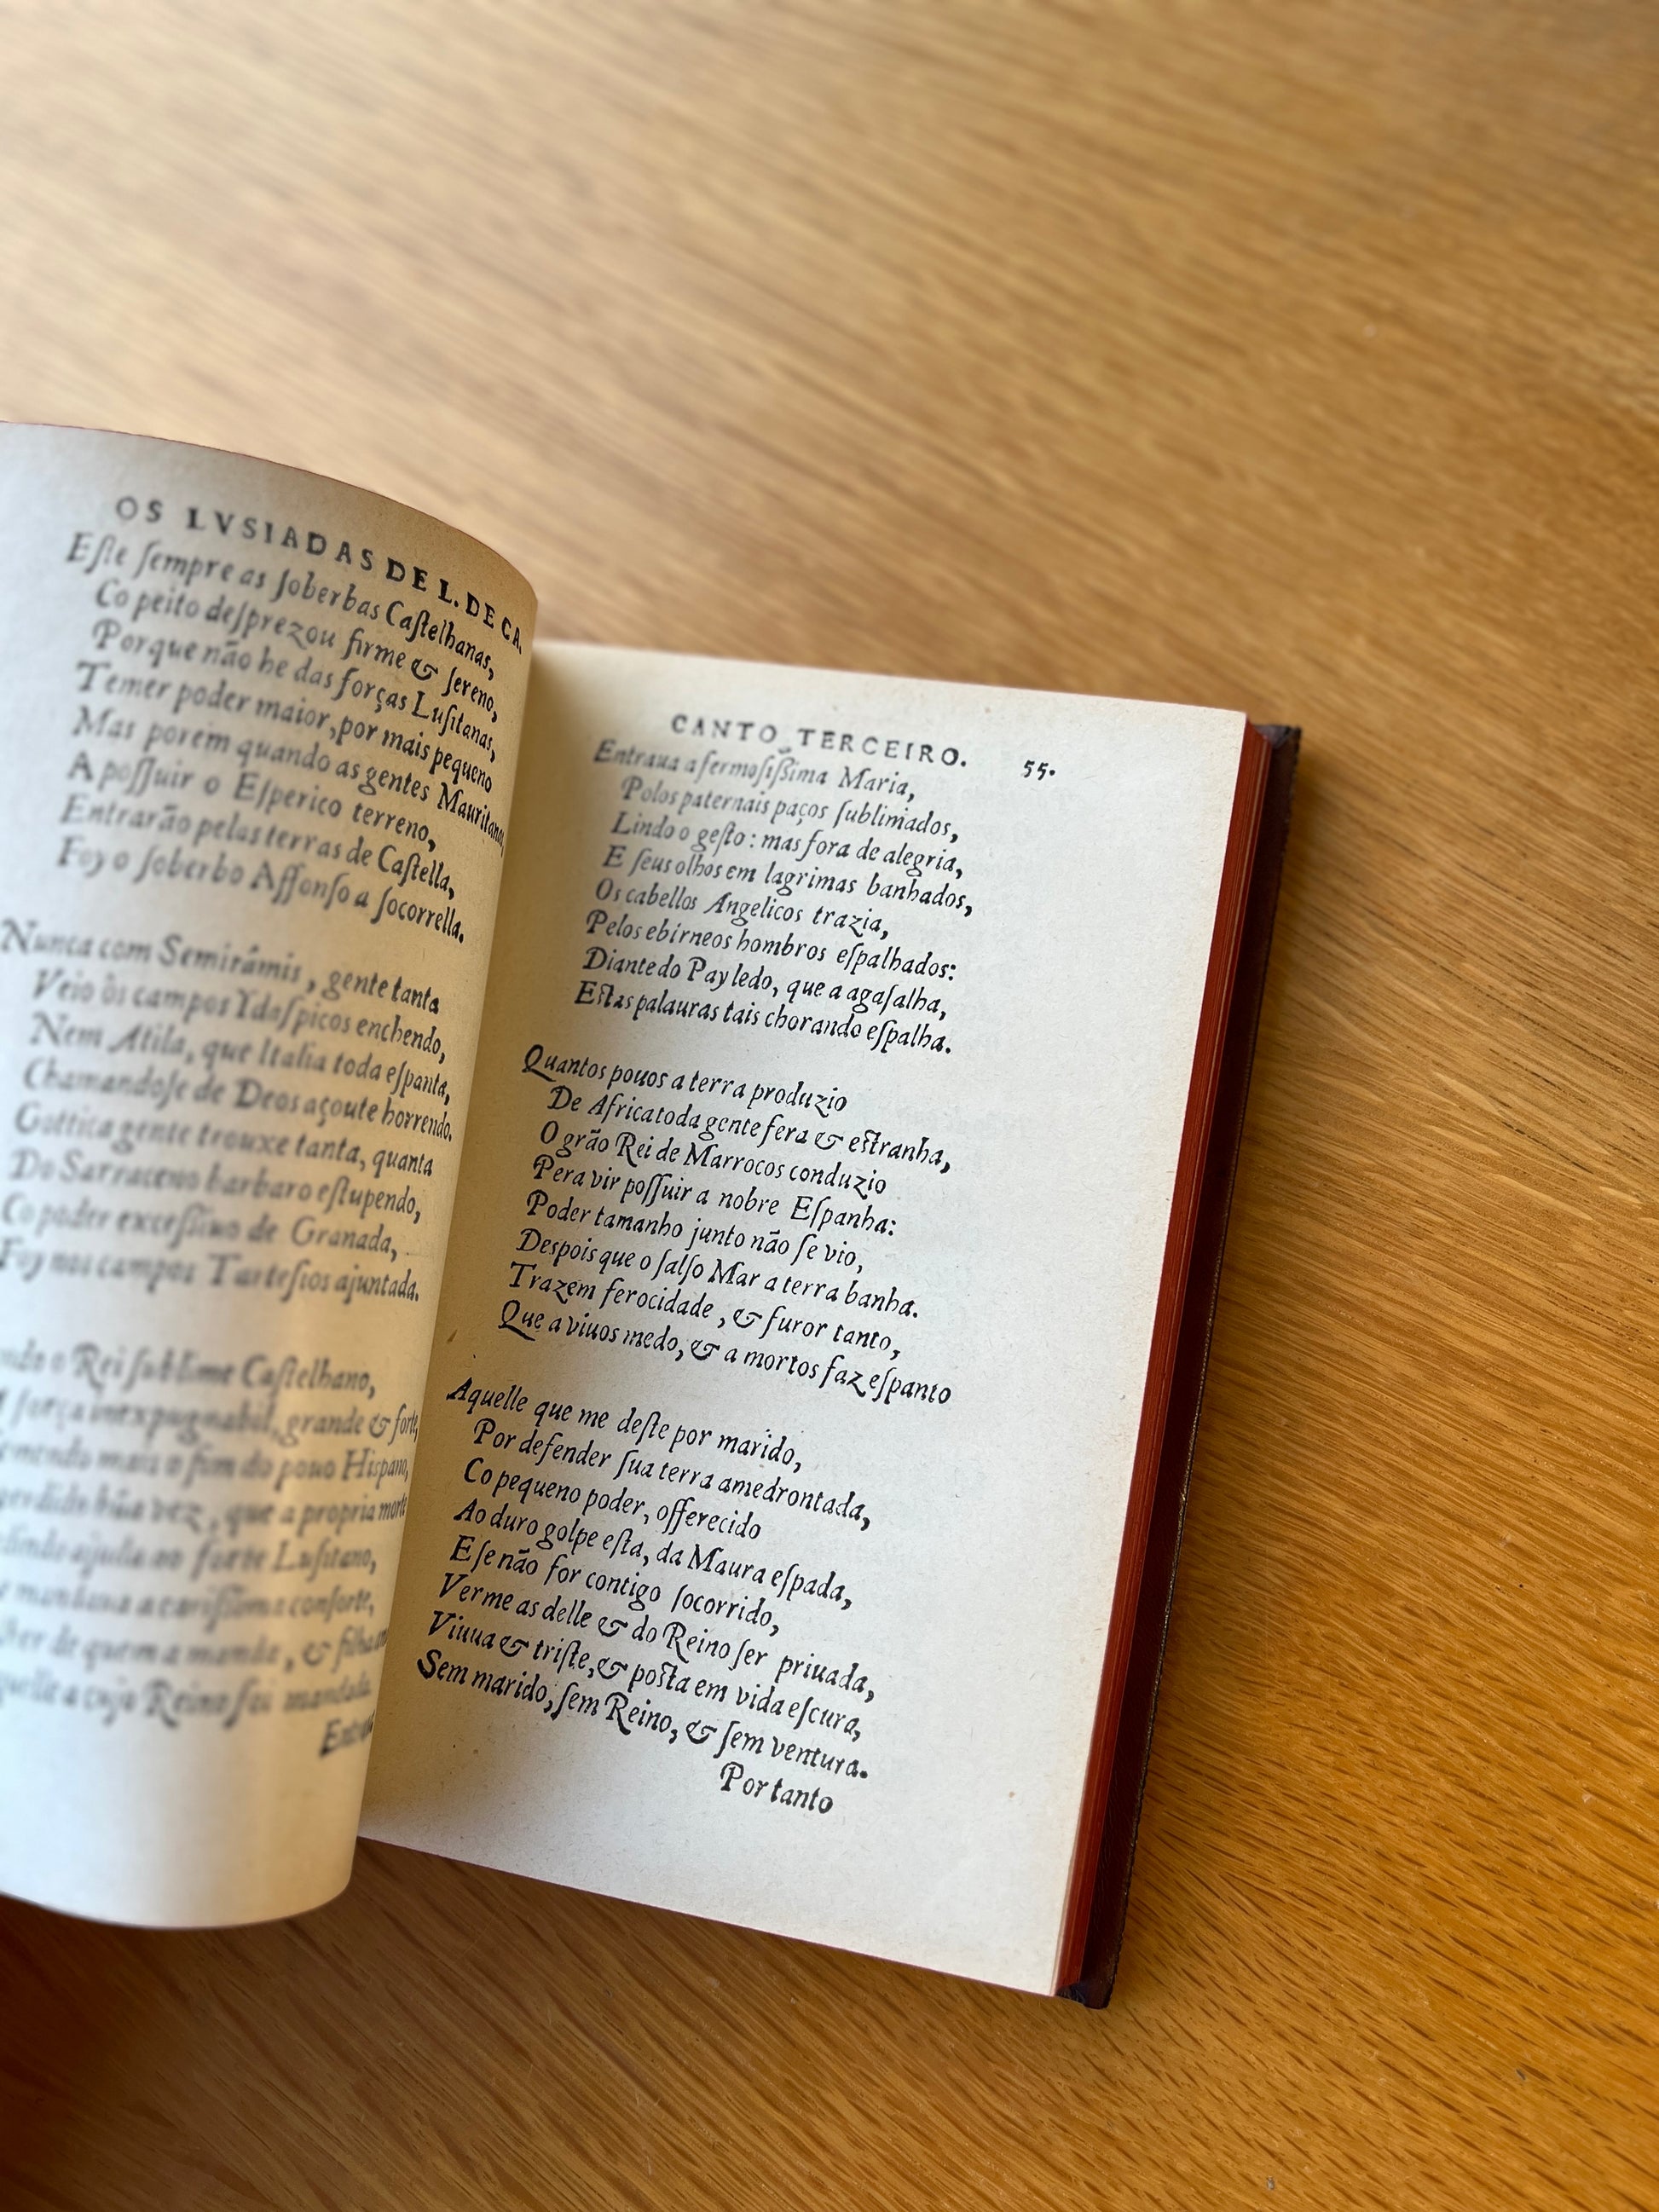 OS LVSIADAS DE L. DE CA.
Eſte ſempre as ſoberbas Caſtelhanas,
Co peito deſprezou firme & ſereno,
Porque não he das forças Luſitanas,
Temer poder maior, por mais pequeno
Mas porem quando as gentes Mauritanas,
A poſſuir o Eſperico terreno,
Entrarão pelas terras de Caſtella,
Foy o ſoberbo Affonſo a ſocorrella.
Nunca com Semirâmis, gente tanta
Veio òs campos Ydaſpicos enchendo,
Nem Atila, que Italia toda eſpanta,
Chamandoſe de Deos açoute horrendo.
Gottica gente trouxe tanta, quanta
Do Sarraceno barbaro eſtupendo,
Co poder exceſſiuo de Granada,
Foy nos campos Tarteſios ajuntada.
o Rei ſublime Caſtelhano,
força inexpugnabil, grande & forte,
mais o fim do pouo Hiſpano,
hũa vez, que a propria morte
ajuda ao forte Luſitano,
mandaua a cariſſima conſorte,
de quem a manda, & filha
a cujo Reino foi mandada.
CANTO TERCEIRO. 55.
Entraua a fermoſiſſima Maria,
Polos paternais paços ſublimados,
Lindo o geſto: mas fora de alegria,
E ſeus olhos em lagrimas banhados,
Os cabellos Angelicos trazia,
Pelos ebúrneos hombros eſpalhados:
Diante do Pay ledo, que a agaſalha,
Eſtas palauras tais chorando eſpalha.
Quantos pouos a terra produzio
De Africa toda gente fera & eſtranha,
O grão Rei de Marrocos conduzio
Pera vir poſſuir a nobre Eſpanha:
Poder tamanho junto não ſe vio,
Deſpois que o ſalſo Mar a terra banha.
Trazem ferocidade, & furor tanto,
Que a viuos medo, & a mortos faz eſpanto
Aquelle que me deſte por marido,
Por defender ſua terra amedrontada,
Co pequeno poder, offerecido
Ao duro golpe eſta, da Maura eſpada,
E ſe não for contigo ſocorrido,
Verme as delle & do Reino ſer priuada,
Viuua & triſte, & poſta em vida eſcura,
Sem marido, ſem Reino, & ſem ventura.
Portanto